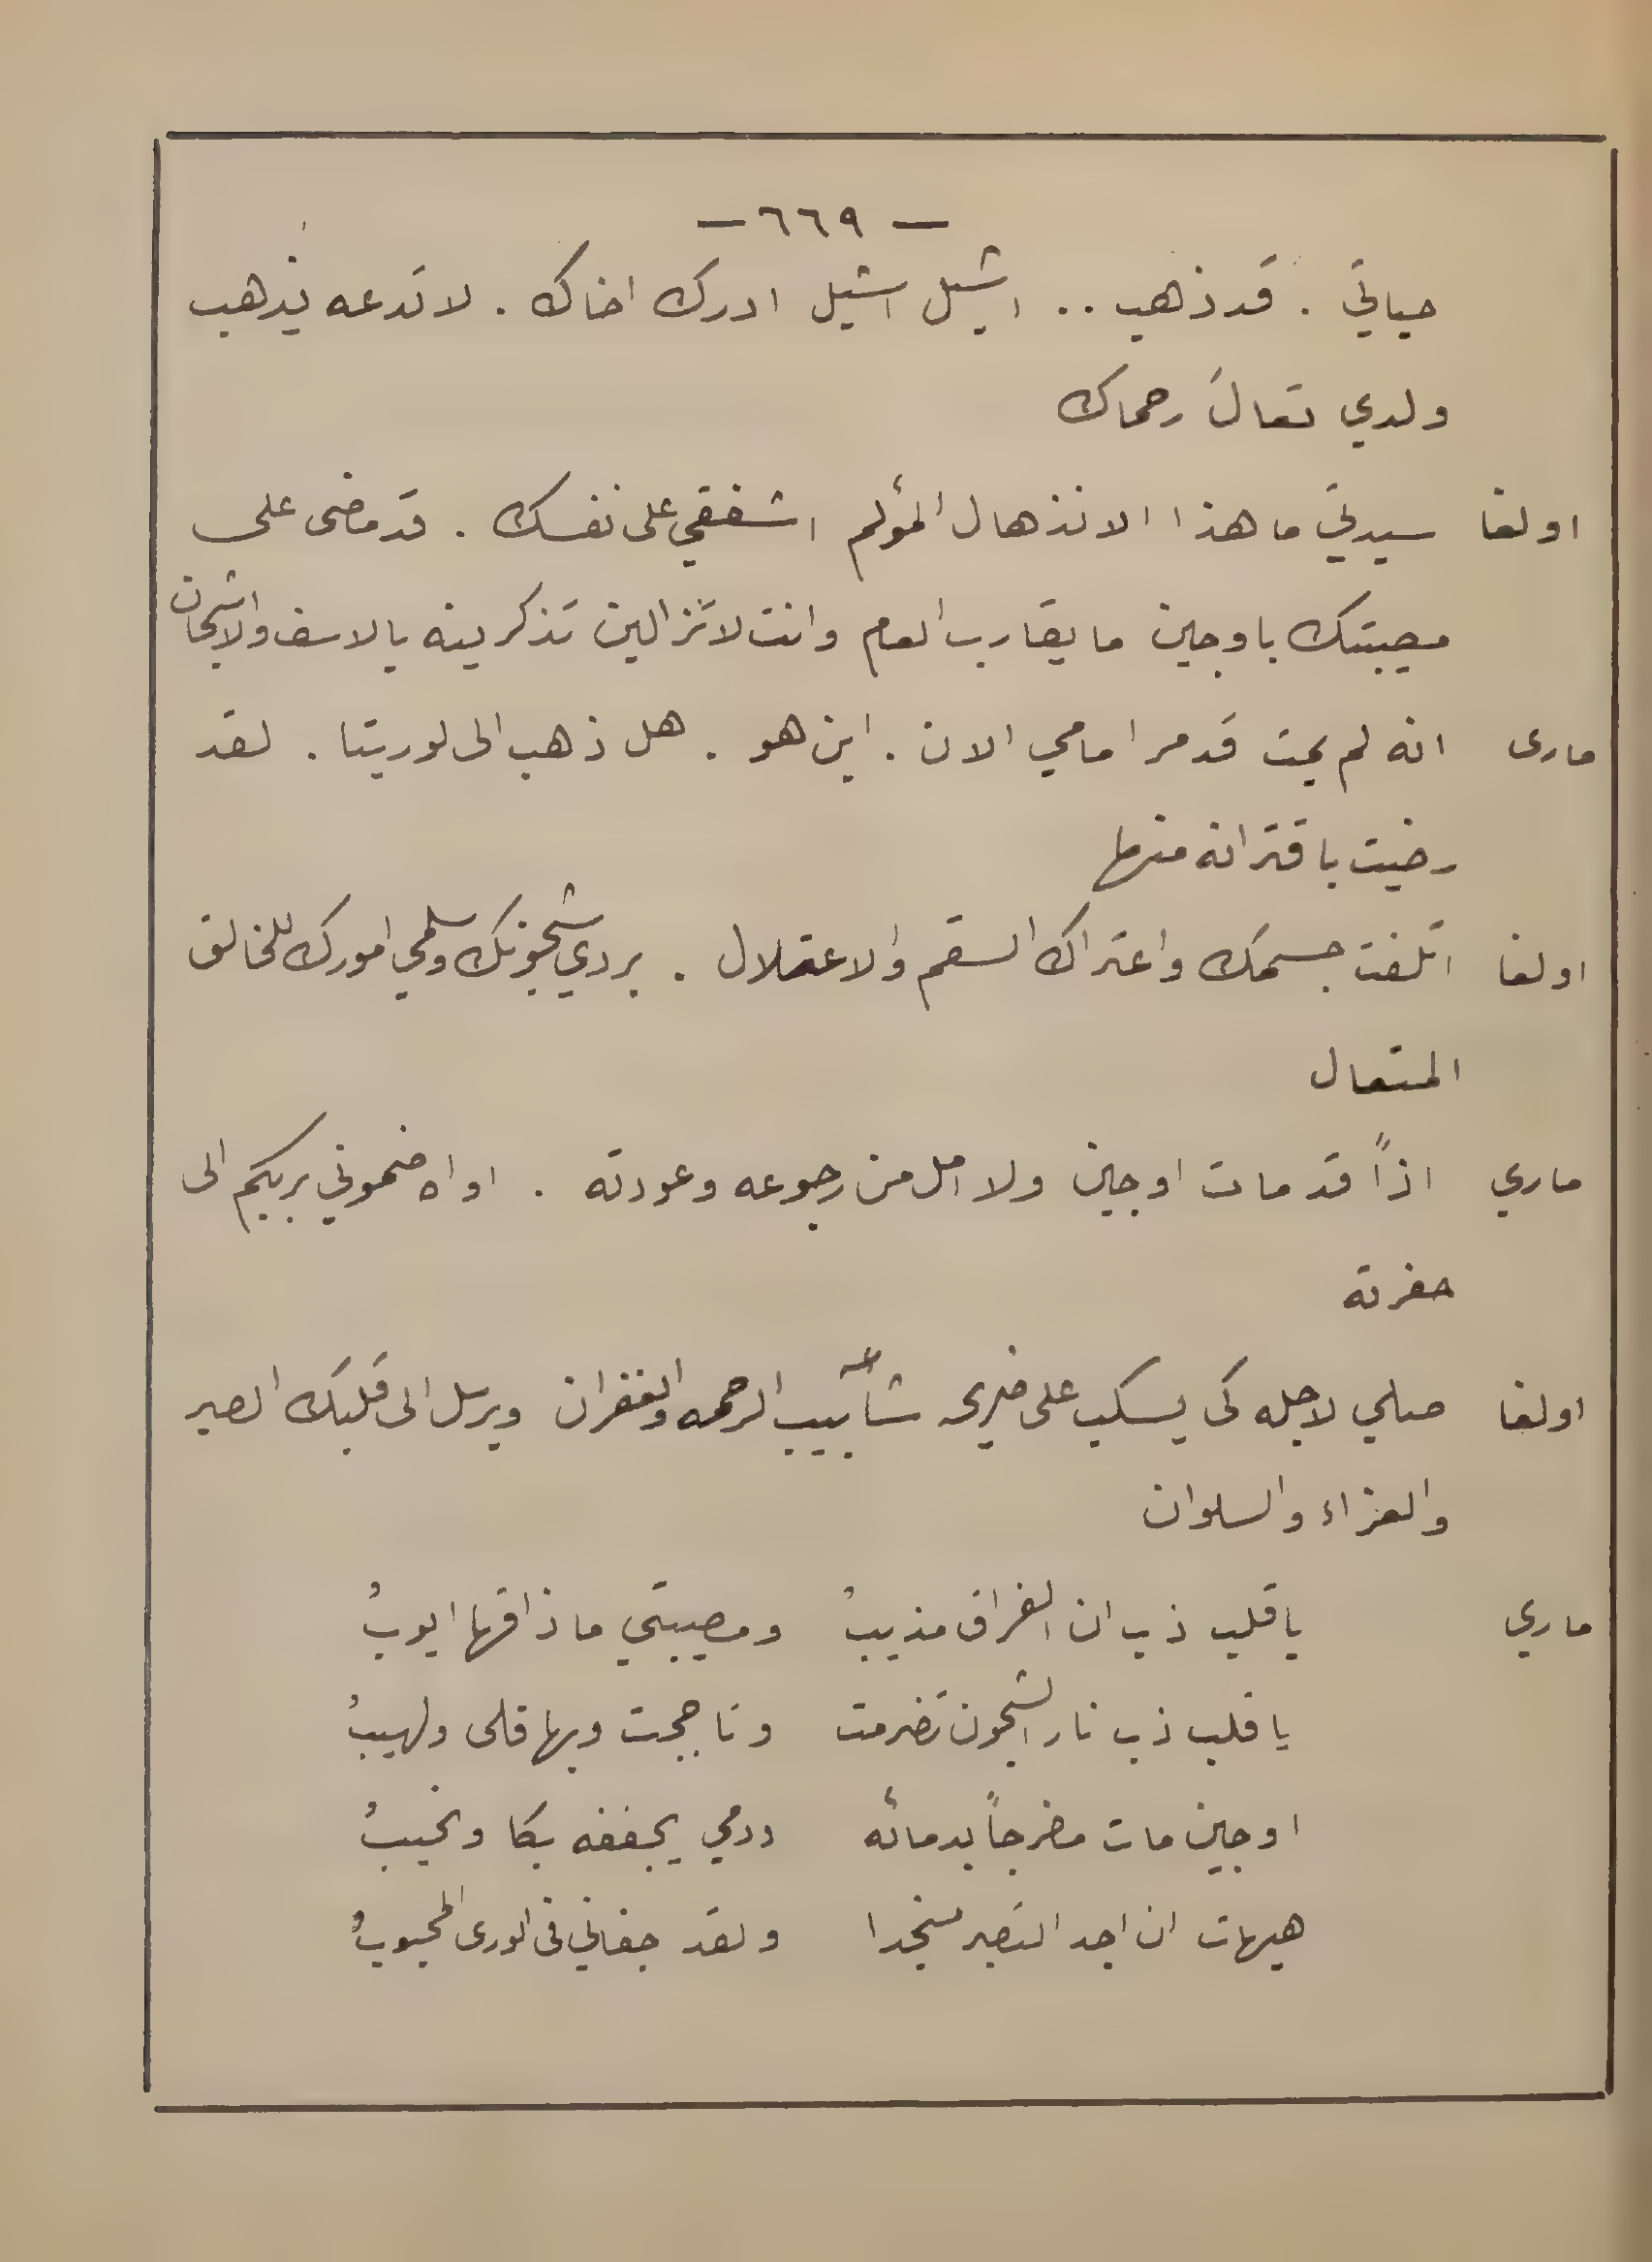 — ٦٦٩ —
حياتي . قد ذهب .. اشيل اشيل ادرك اخاك . لا تدعه يذهب
ولدي تعالَ رحماك
اولغا سيدتي ما هذا الانذهال المؤلم اشفقي على نفسك . قد مضى على
مصيبتك باوجين ما يقارب العام وانت لا تزالين تذكرينه بالاسف والاشجان
مارى انه لم يمت قد مر امامي الان . اين هو . هل ذهب الى لوريتا . لقد
رضيت باقترانه منها
اولغا اتلفت جسمك واعتراك السقم والاعتلال . بردي شجونك وسلمي امورك للخالق
المتعال
ماري اذاً قد مات اوجين ولا امل من رجوعه وعودته . اواه ضموني بربكم الى
حفرته
اولغا صلي لاجله كى يسكب على ضريحه شآبيب الرحمه والغفران ويرسل الى قلبك الصبر
والعزاء والسلوان
ماري يا قلب ذب ان الفراق مذيبُ ومصيبتي ما ذاقها ايوبُ
يا قلب ذب نار الشجون تضرمت وتاججت وبها قلى ولهيبُ
اوجين مات مضرجاً بدمائه ودمي يجففه بكا ونحيبُ
هيهات ان اجد التصبر منجدا ولقد جفاني فى الورى المحبوبُ